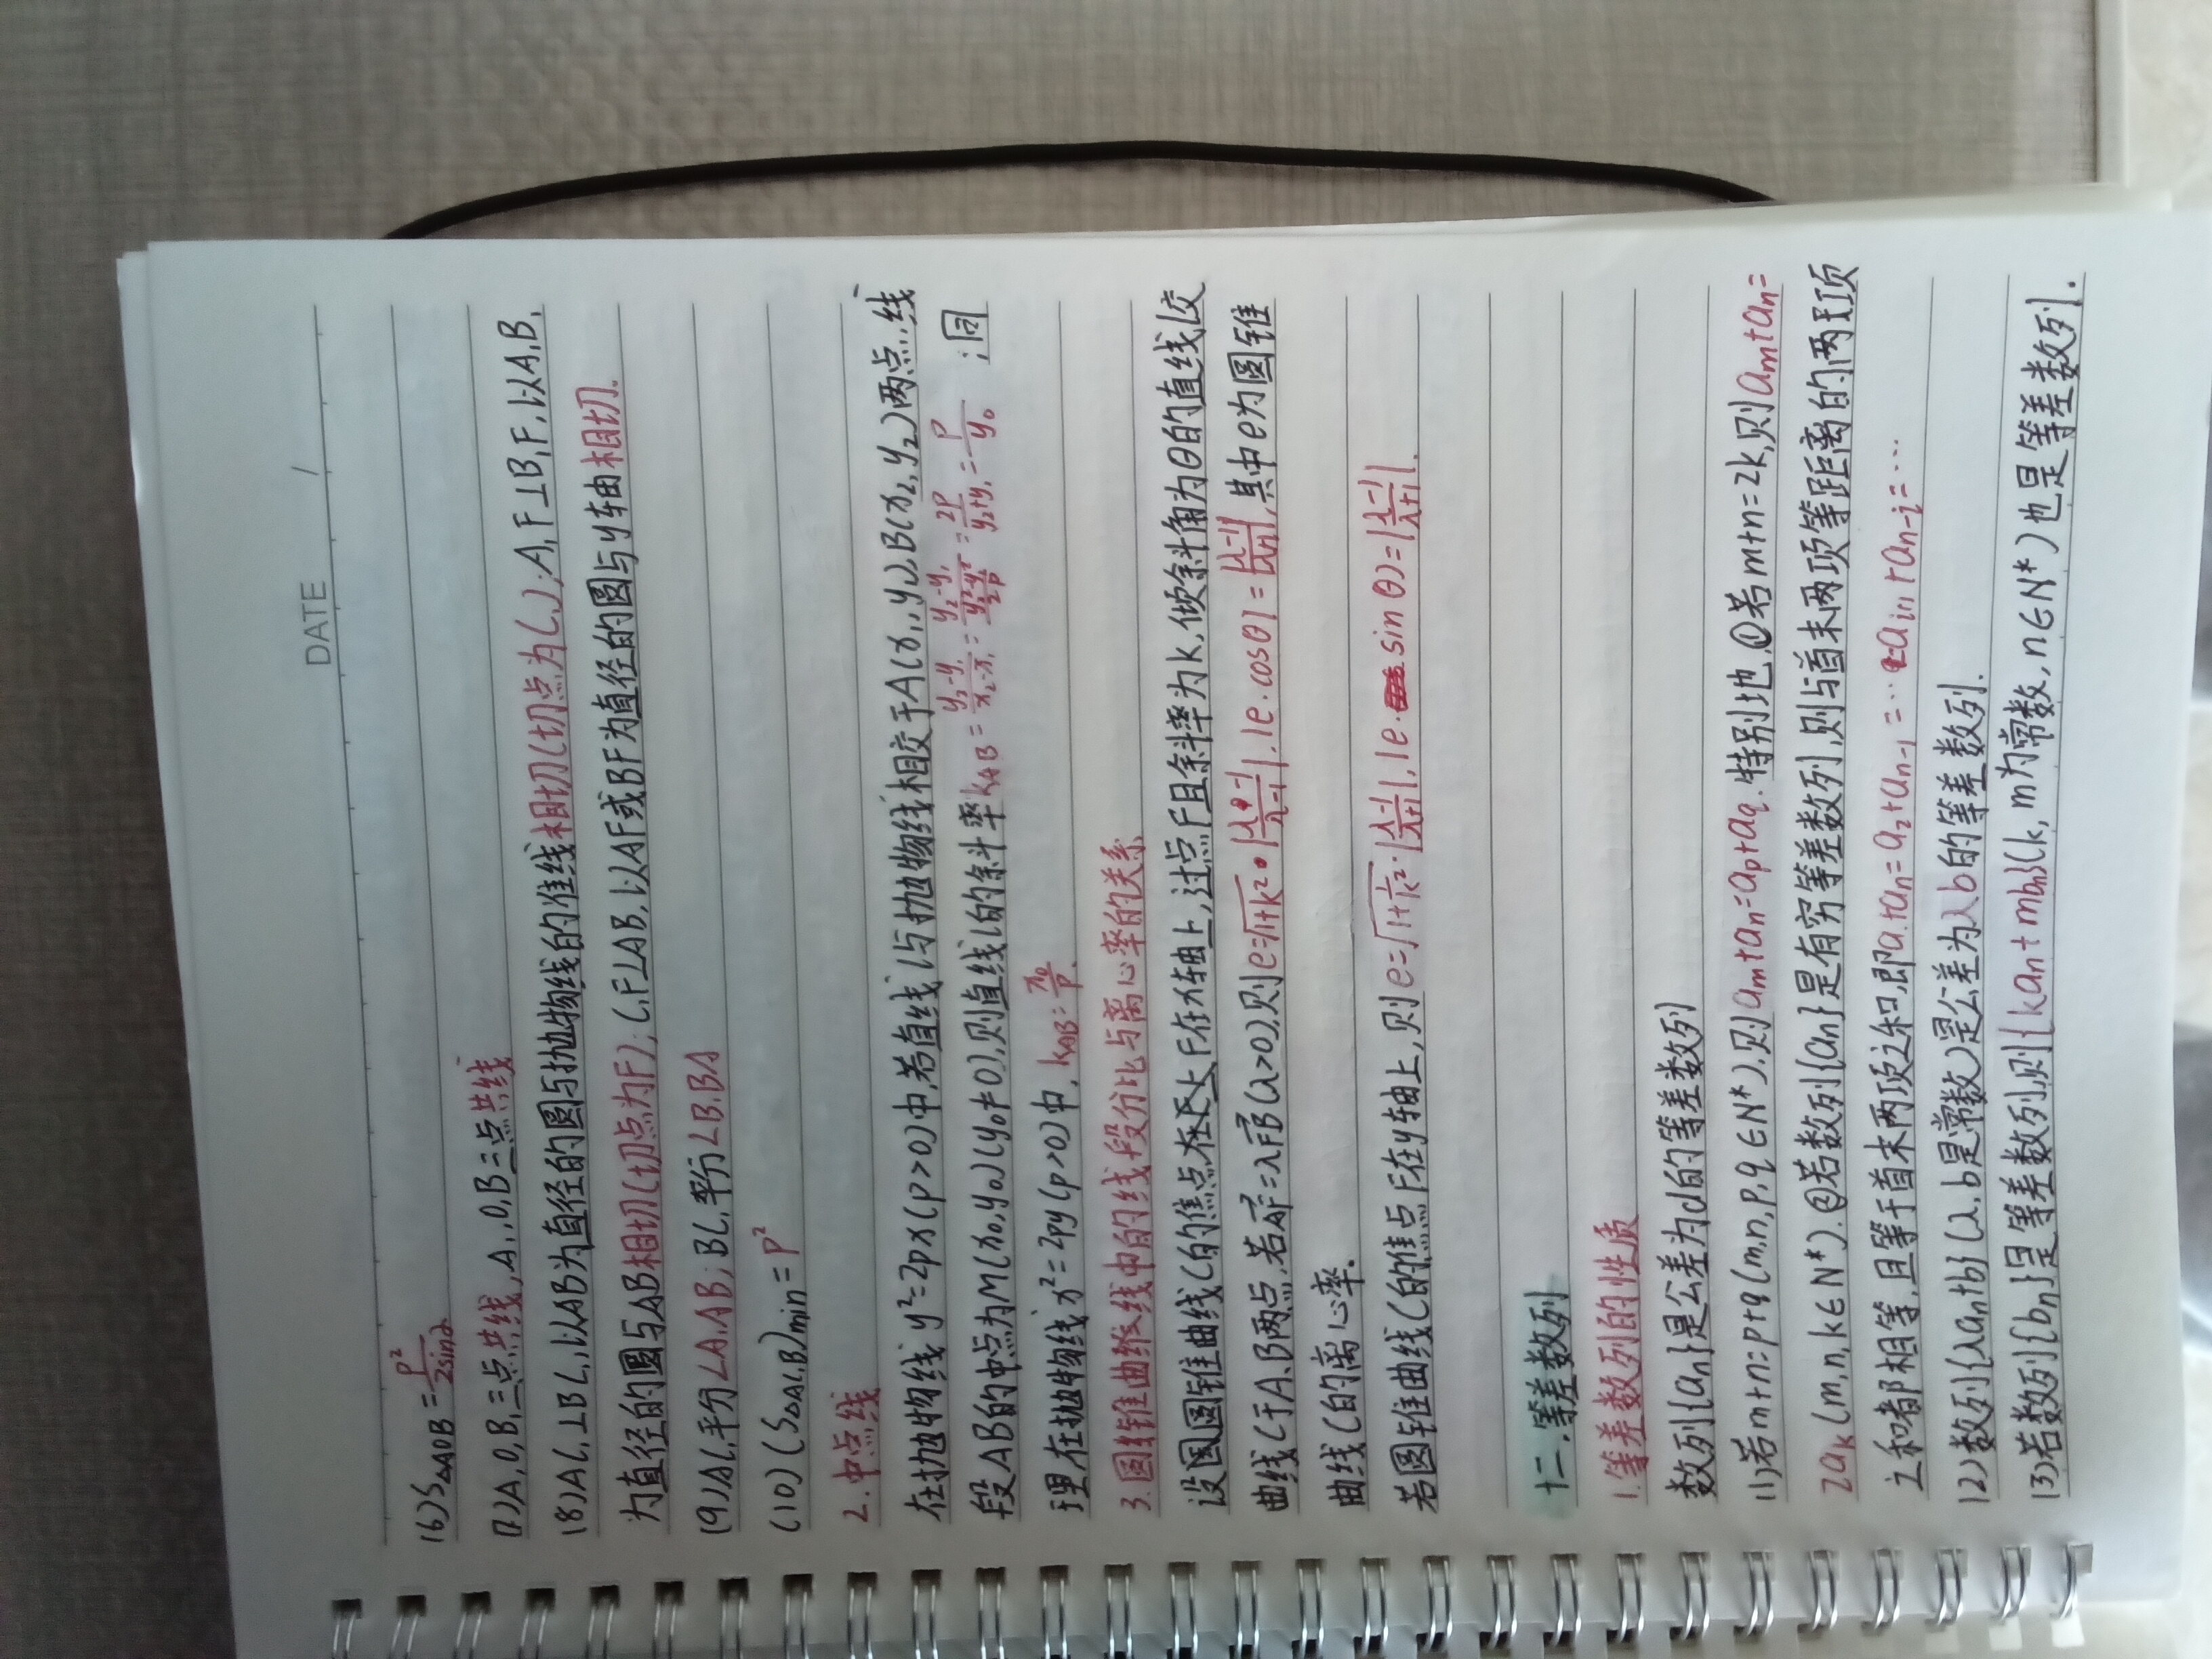 DATE /
(6) S△AOB = p²/2sinα
(7) A, O, B₁三点共线, A₁, O, B三点共线
(8) AC₁⊥BC₁, 以AB为直径的圆与抛物线的准线相切(切点为C₁); A₁F⊥B₁F, 以A₁B₁
为直径的圆与AB相切(切点为F); C₁F⊥AB, 以AF或BF为直径的圆与y轴相切.
(9) AC₁平分∠A₁AB; BC₁平分∠B₁BA
(10) (S△AC₁B)min = p²
2. 中点线
在抛物线y²=2px(p>0)中,若直线l与抛物线相交于A(x₁,y₁),B(x₂,y₂)两点,线
段AB的中点为M(x₀,y₀)(y₀≠0),则直线l的斜率kAB = (y₂-y₁)/(x₂-x₁) = (y₂-y₁)/((y₂²-y₁²)/2p) = 2p/(y₂+y₁) = p/y₀ ;同
理在抛物线x²=2py(p>0)中, kAB = x₀/p.
3. 圆锥曲线中的线段分比与离心率的关系
设圆锥曲线C的焦点F在x轴上,过点F且斜率为k,倾斜角为θ的直线l交
曲线C于A,B两点,若AF=λFB(λ>0),则e=√(1+k²)·|(λ-1)/(λ-1)|, |e·cosθ| = |(λ-1)/(λ+1)|,其中e为圆锥
曲线C的离心率.
若圆锥曲线C的焦点F在y轴上,则e=√(1+1/k²)·|(λ-1)/(λ+1)|, |e·sinθ)=|(λ-1)/(λ+1)|.
十二.等差数列
1.等差数列的性质
数列{an}是公差为d的等差数列
(1)若m+n=p+q(m,n,p,q∈N*),则am+an=ap+aq.特别地,①若m+n=2k,则am+an=
2ak(m,n,k∈N*).②若数列{an}是有穷等差数列,则与首末两项等距离的两项
之和都相等,且等于首末两项之和,即a₁+an=a₂+an-1=…=ai+1+an-i=…
(2)数列{λan+b}(λ,b是常数)是公差为λb的等差数列.
(3)若数列{bn}是等差数列,则{kan+mbn}(k,m为常数,n∈N*)也是等差数列.